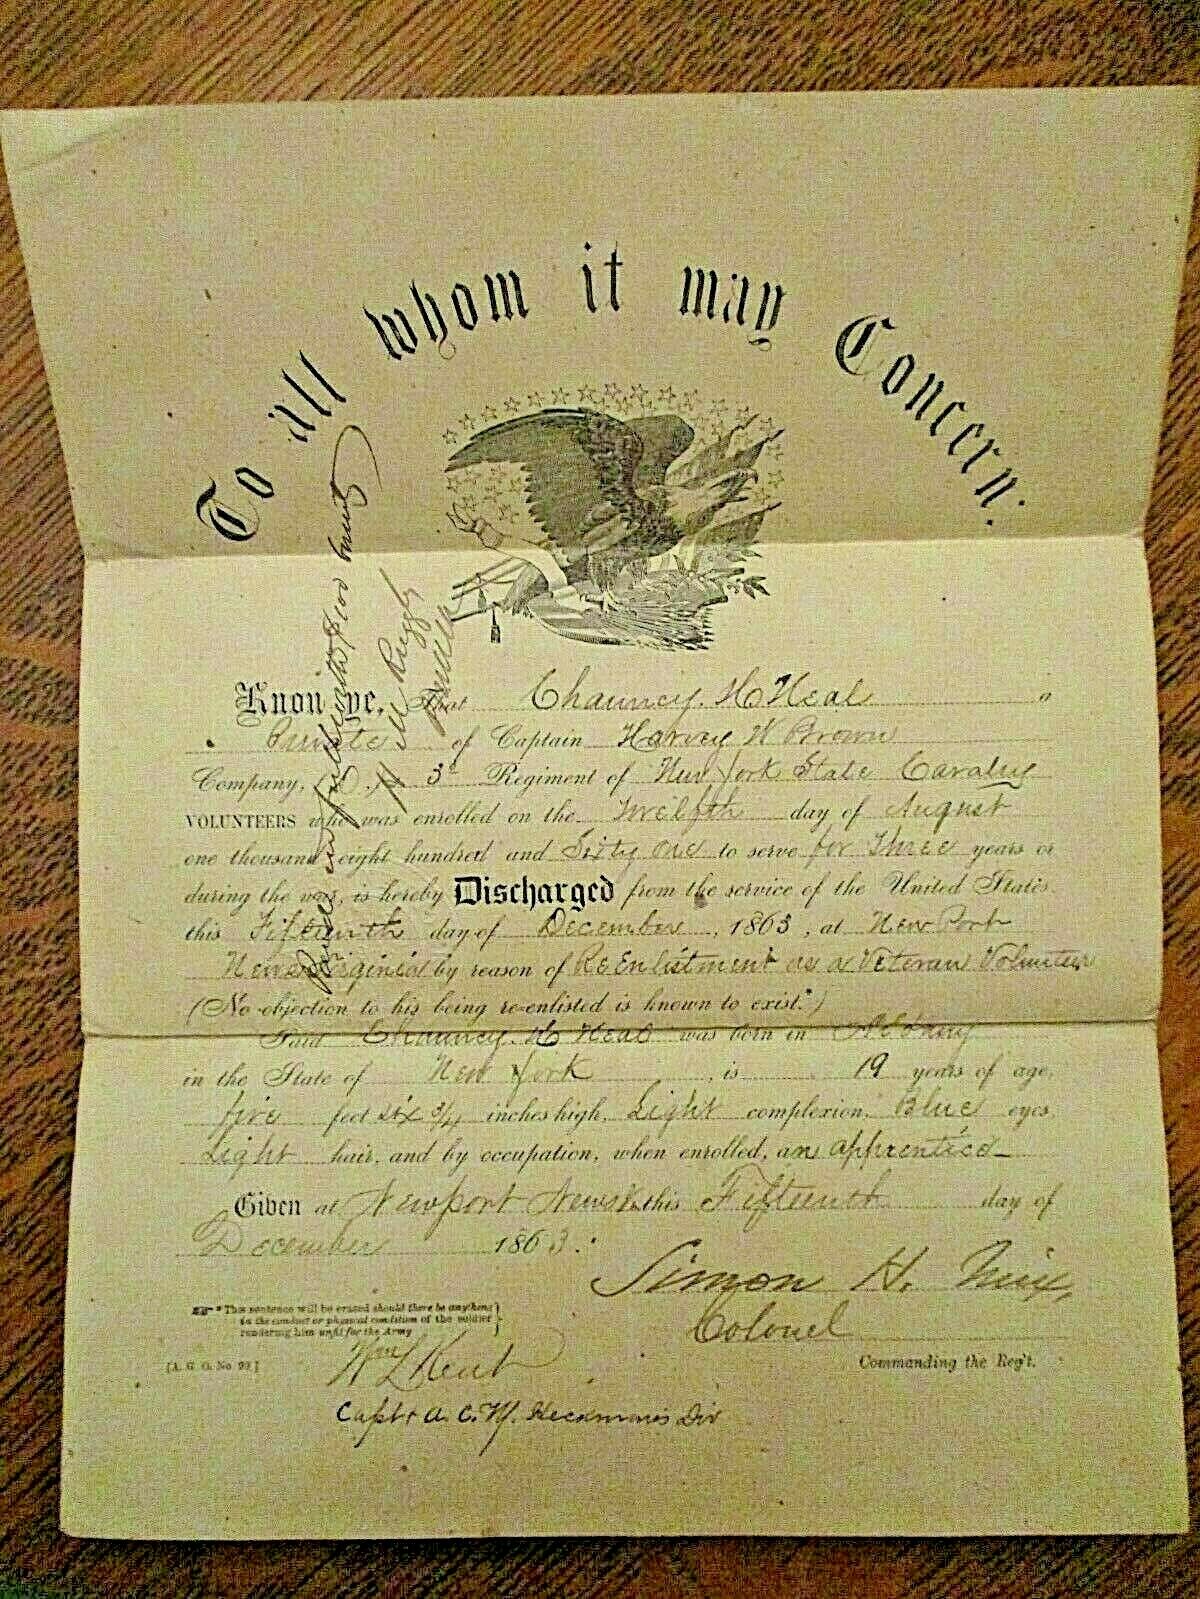 To all whom it may Concern:
Know ye, That Chauncy. H Neal a
Private of Captain Harvey W Brown
Company, 3d Regiment of New York State Cavalry
VOLUNTEERS who was enrolled on the Twelfth day of August
one thousand eight hundred and Sixty one to serve for Three years or
during the war, is hereby Discharged from the service of the United States,
this Fifteenth day of December, 1863, at New Port
News Virginia by reason of ReEnlistment as a Veteran Volunteer
(No objection to his being re-enlisted is known to exist.*)
Said Chauncy. H Neal was born in Albany
in the State of New York, is 19 years of age,
five feet six 3/4 inches high, Light complexion, Blue eyes,
Light hair, and by occupation, when enrolled, an apprentice
Given at Newport News Va this Fifteenth day of
December 1863.
Simon H. Mix,
Colonel
Commanding the Reg't.
*This sentence will be erased should there be anything
in the conduct or physical condition of the soldier
rendering him unfit for the Army
[A. G. O. No. 99]
Wm L Kent
Capt & A. C. M. Heckman's Div
Paid in full with $100 bounty